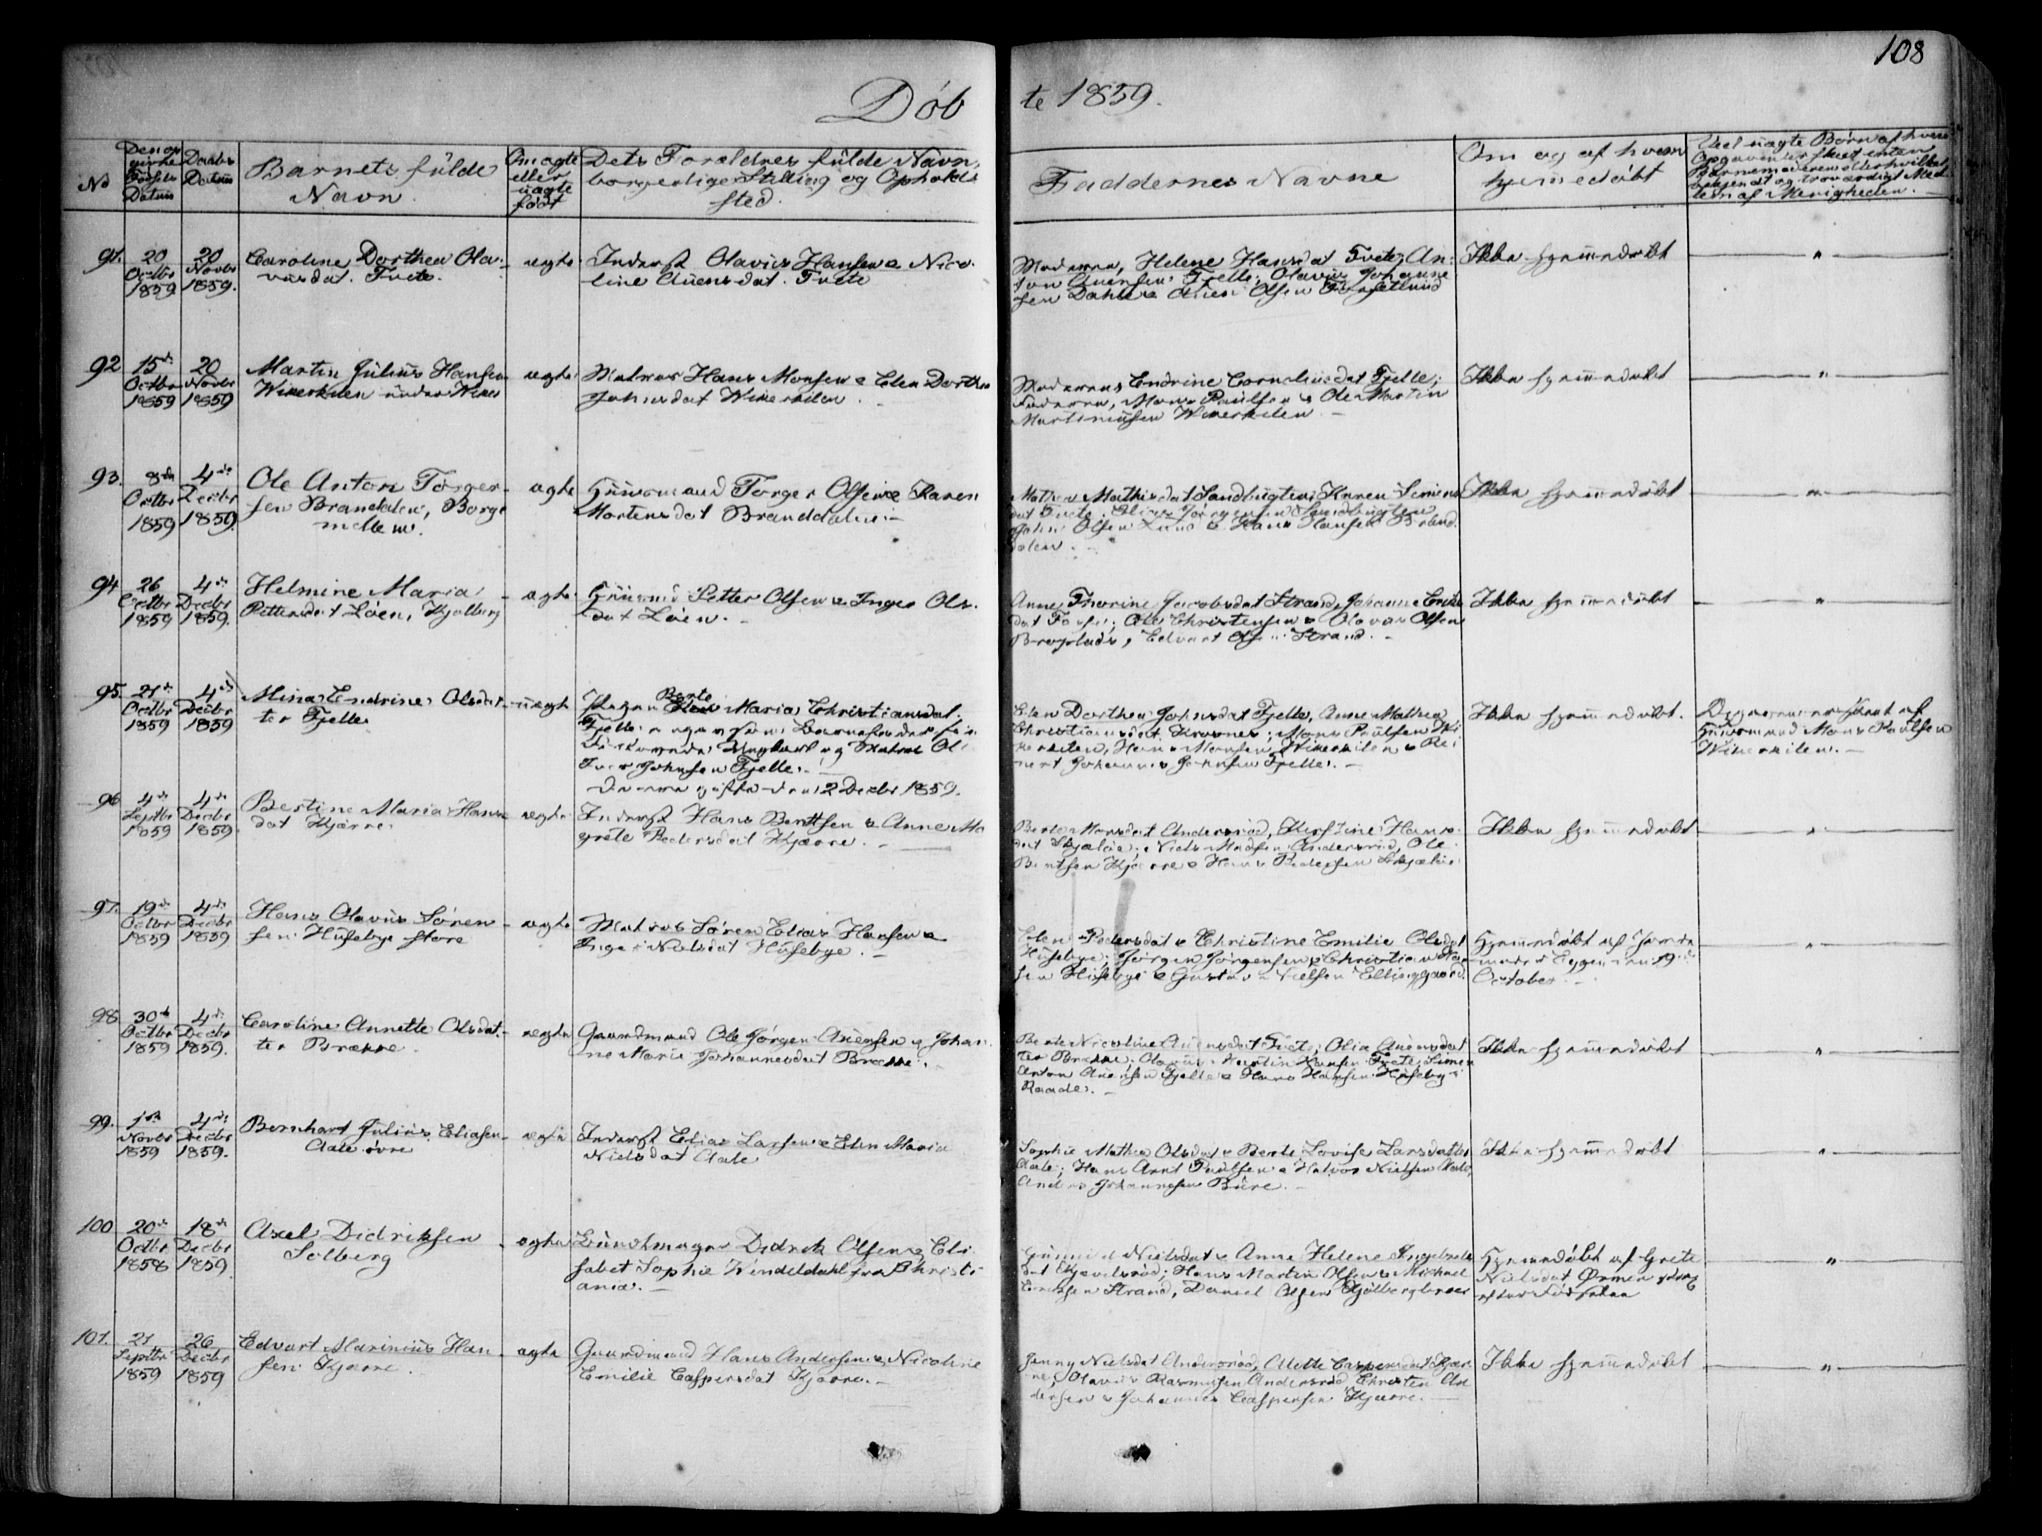 108
Döb
te 1859.
No
Den op
givne
Fødsels
Datum
Daabs
Datum
Barnets fülde
Navn.
Om ægte
eller
uægte
født
Dets Forældres fülde Navn,
borgerlige Stilling og Opholds
sted.
Faddernes Navne
Om og af hvem
hjemmedøbt
Ved uægte Børn af hvem
Opgaven er skeet enten
Barnemoderen eller hvilket
bekjendt og troværdigt Med
lem af Menigheden.
91. 20 Octbr 1859 20 Novbr 1859.
Caroline Dorthea Ola-
vusdat. Tvete.
ægte
Inderst Olavus Hansen & Nico-
line Auensdat. Tvete
Moderen, Helene Hansdat Tvete, An-
ton Auensen Fjelle; Olavus Johanne
sen Dahle & Auen Olsen
Ikke hjemmedøbt
"
92 15de Octbr 1859 20 Novbr 1859
Martin Julius Hansen
Wikerkilen under Wiker
ægte
Matros Hans Monsen & Elen Dorthea
Johnsdat Wikerkilen.
Moderen, Endrine Corneliusdat Fjelle;
Faderen, Mons Paulsen & Ole Martin
Martiniussen Wikerkilen. -
Ikke hjemmedøbt
"
93. 8de Octbr 1859 4de Decbr 1859.
Ole Anton Torger-
sen Brandalen, Borge
mellem.
ægte
Huusmand Torger Olsen & Karen
Mortensdat Branddalen. -
Mathea Mathisdat Sandbugten, Karen Simens
dat Tvete; Oliver Jørgensen Sandbugten
John Olsen Lund & Hans Hansen Brand
dalen. -
Ikke hjemmedøbt
"
94 26 Octbr 1859 4de Decbr 1859.
Helmine Maria
Pettersdat Løen, Kjølberg
ægte
Huusmd Petter Olsen & Inger Ols-
dat Løen. -
Anne Thorine Jacobsdat Strand, Johanne
dat; Ole Christensen & Olavus Olsen
Edvart Strand. -
Ikke hjemmedøbt
"
95. 21de Octbr 1859 4de Decbr 1859
Mina Endrine Olsdat-
ter Fjelle
uægte
Pigen Berte Maria Christiansdat.
Fjelle
Ungkarl og Matros Ole
Iver Johnsen Fjelle. -
De ere gifte den 2 Decbr 1859.
Elen Dorthea Johnsdat Fjelle, Anne Mathea
Christiansdat Krosnes; Mons Paulsen Wi-
kerkilen, Hans Monsen Wikerkilen & Rei-
nert Johannes Johnsen Fjelle. -
Ikke hjemmedøbt.
Huusmand Mons Paulsen
Wikerkilen. -
96 4de Septbr 1859 4de Decbr 1859.
Bestine Maria Hans
dat Kjærre.
ægte
Inderst Hans Bentsen & Anne Ma
grete Pedersdat Kjærre. -
Berte Monsdat Andersrød, Kirstine Hans-
dat Skjæløe; Niels Madsen Andersrød, Ole
Bentsen Kjærre & Hans Pedersen Skjæløe
Ikke hjemmedøbt
"
97. 19de Octbr 1859 4de Decbr 1859
Hans Olavus Søren
sen Husebye store
ægte
Matros Søren Elias Hansen &
Inger Nielsdat Husebye. -
Elen Pedersdat & Christine Emilie Olsdat
Husebye; Jørgen Jørgensen & Christian
sen Husebye & Gustav Nielsen Ellinggaard
Hjemmedøbt af Jorde
moder Eggen den 19de
October. -
"
98 30te Octbr 1859 4de Decbr 1859.
Caroline Annette Olsdat-
ter Brække
ægte
Gaardmand Ole Jørgen Auensen & Johan
ne Marie Johannesdat Brække. -
Berte Nicoline Auensdat Tvete, Olia Auensdat
ter Brække; Martin Hansen Tvete, Simen
Anton Auensen Fjelle & Hans Hansen Huseby i
Raade. -
Ikke hjemmedøbt
"
99. 1ste Novbr 1859 4de Decbr 1859.
Bernhart Julius Eliasen
Aale øvre
ægte
Inderst Elias Larsen & Elen Maria
Nielsdat Aale
Sophie Mathea Olsdat & Berte Lovise Larsdatter
Aale; Hans Arnt Paulsen & Halvor Nielsen Aale,
Anders Johannesen Büre. -
Ikke hjemmedøbt
"
100 20de Octbr 1858 18de Decbr 1859.
Axel Didriksen
Solberg
ægte
Buntmager Didrik Olsen & Eli-
sabet Sophie Wendeldahl fra Christi
ania. -
Gunnild Nielsdat & Anne Helene Ingebrets
dat Kjevelsrød; Hans Martin Olsen & Michael
Ericksen Strand, Daniel Olsen
Hjemmedøbt af Grete
Nielsdat Ørmen strax
efter Fødselen
"
101. 21 Septbr 1859 26 Decbr 1859
Edvart Marinius Han
sen Kjærre.
ægte
Gaardmand Hans Andersen & Nicoline
Emilie Caspersdat Kjærre. -
Jenny Nielsdat Andersrød, Alette Caspersdat Kjær
re, Olavus Rasmusen Andersrød Christen An
dersen & Johannes Caspersen Kjærre. -
Ikke hjemmedøbt
"